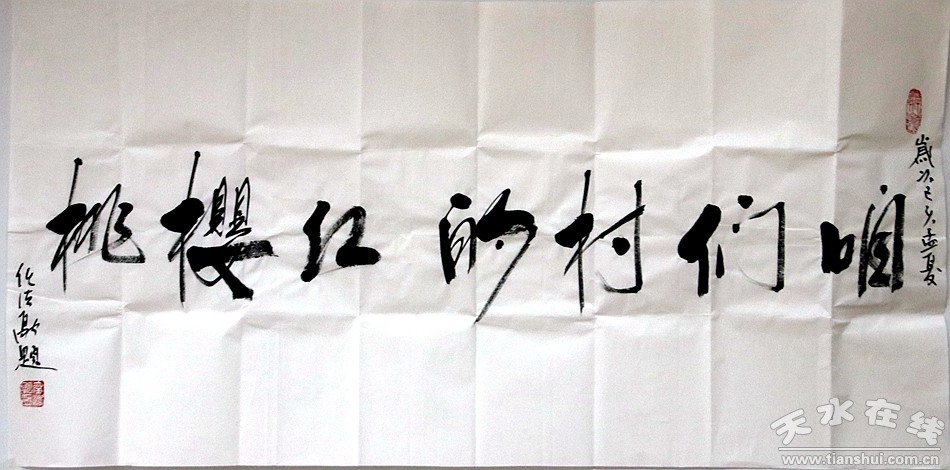 歲次己亥孟夏
咱们村的红櫻桃
任法融題
天水在线
www.tianshui.com.cn